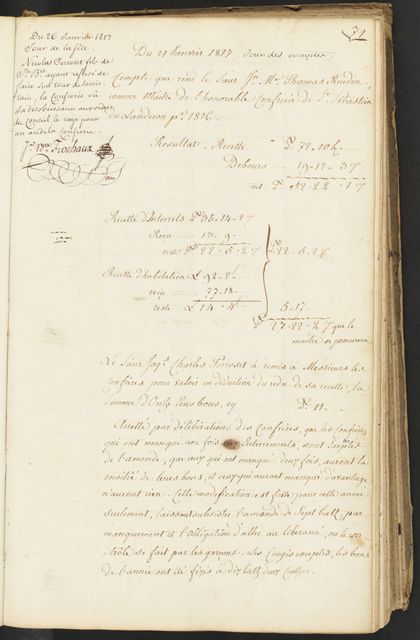 71
Du 26 Janvier 1817
Jour de la fête.
Nicolas Perroset fils de
Js. Bte. ayant refusé de
faire son tour de
la Confrérie
du Conseil le reçu pour
un an de la Confrérie.
Frochaux
Du 27 Janvier 1817. Jour des comptes.
Compte que rend le Sieur Jn. Me. Thomas Ruedin,
comme Maître de l'honorable Confrérie de St. Sébastien
du Landeron pr. 1816.
Resultat. Recette P. 72.10
Debours 19-12-37
net P. 52-22-17
Recette d'Interrets P. 35-14-27
Reçu 13-9-
reste P. 22-5-27 P. 22-5-27
Recette d'habitation L 92-2-
reçu 77-18-
reste L 14-4- 5-17-
27-22-27 que le
maître se procurera
Le Sieur Jaqs. Charles Perroset a remis à Messieurs les
Confreres pour valoir en déduction du redû de sa recette, la
somme d'Onze Écus bons, cy P. 11.
Arreté par délibérations des Confreres, que les Confreres
qui ont manqué une fois aux Enterrements, sont Exeptés
de l'amende, que ceux qui ont manqué deux fois, auront la
moitié de leurs bons, et ceux qui auront manqué d'avantage
n'auront rien. Cette modification est faite, pour cette année
seulement, laissant subsister l'amende de Sept batz, par
manquement et l'Obligation d'aller au libera me, ou le con-
trôle se fait par les garçons. Les Congés exceptés, les bons
de l'année ont été fixés à dix batz deux Cruches.